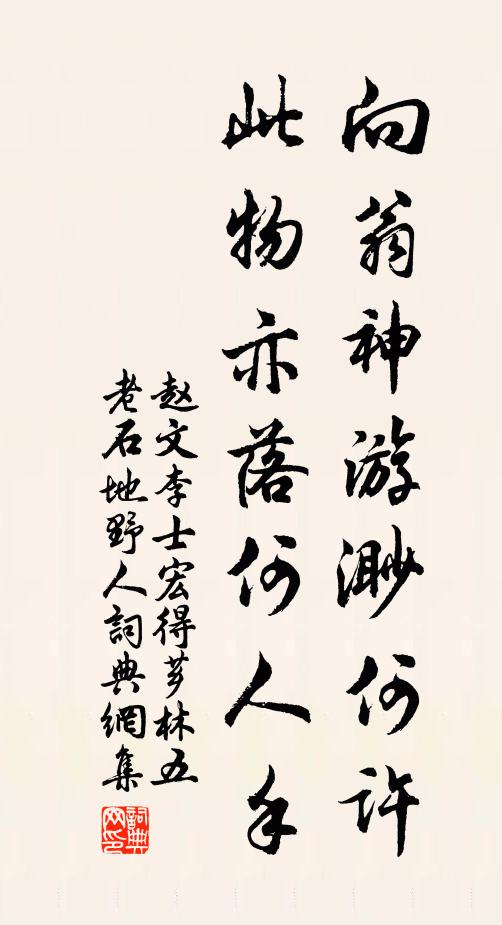 向翁神游渺何许
此物亦落何人手
赵文李士宏得芗林五
老石地野人詞典網集
詞典網印